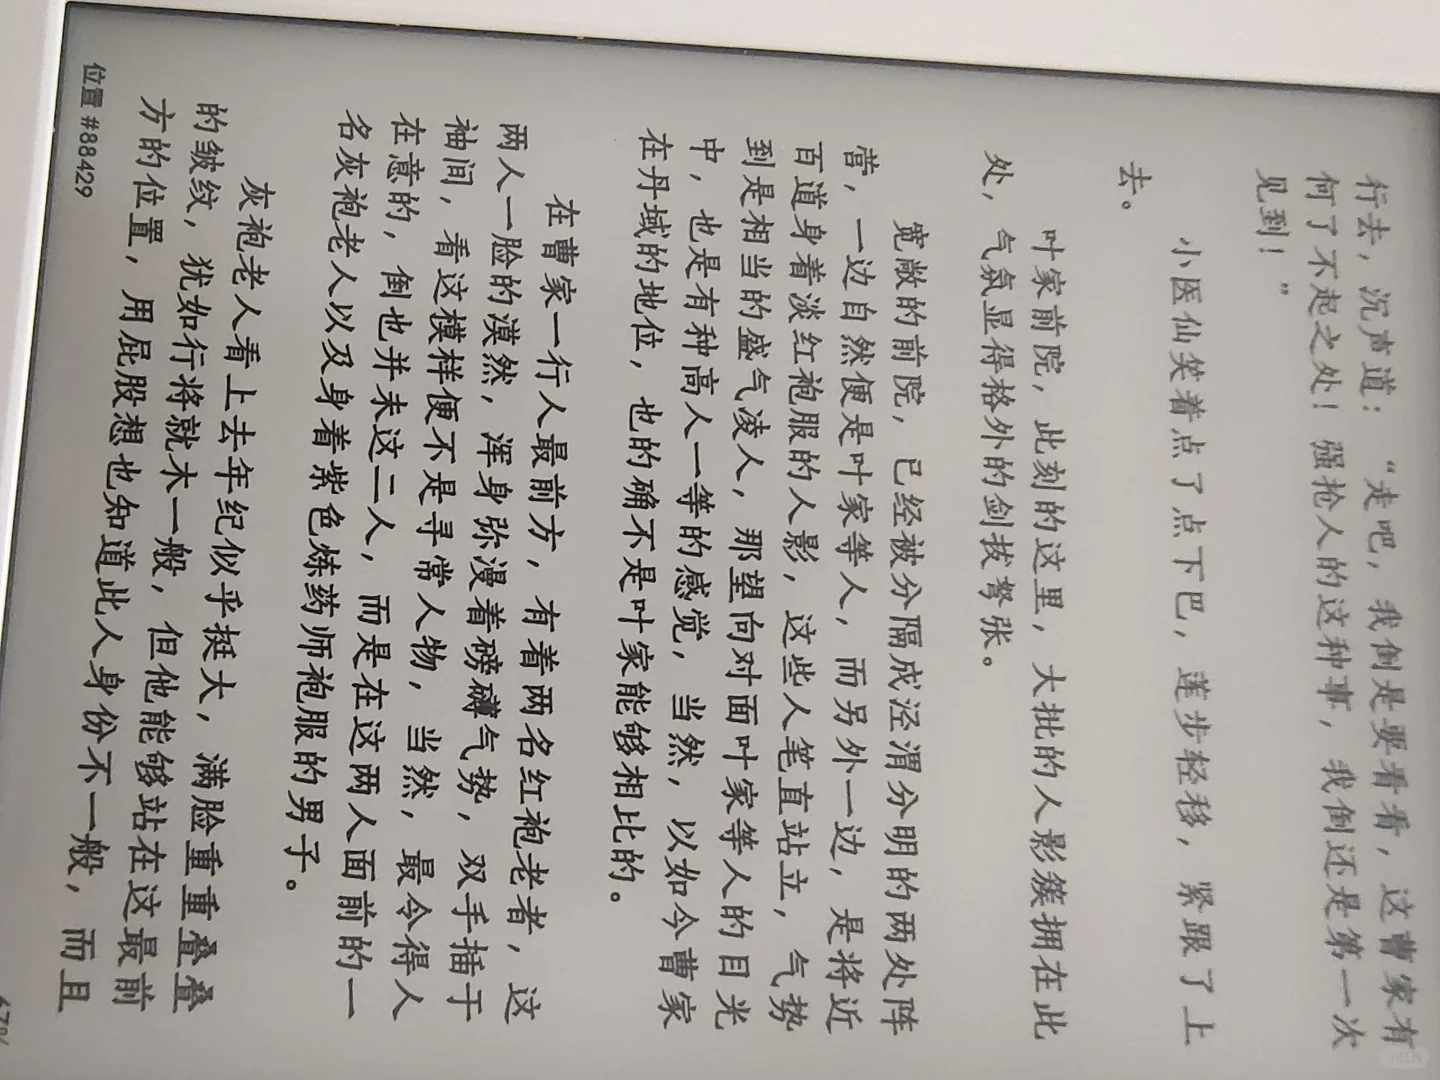 行去，沉声道：“走吧，我倒是要看看，这曹家有
何了不起之处！强抢人的这种事，我倒还是第一次
见到！”
小医仙笑着点了点下巴，莲步轻移，紧跟了上
去。
叶家前院，此刻的这里，大批的人影簇拥在此
处，气氛显得格外的剑拔弩张。
宽敞的前院，已经被分隔成泾渭分明的两处阵
营，一边自然便是叶家等人，而另外一边，是将近
百道身着淡红袍服的人影，这些人笔直站立，气势
到是相当的盛气凌人，那望向对面叶家等人的目光
中，也是有种高人一等的感觉，当然，以如今曹家
在丹域的地位，也的确不是叶家能够相比的。
在曹家一行人最前方，有着两名红袍老者，这
两人一脸的漠然，浑身弥漫着磅礴气势，双手插于
袖间，看这模样便不是寻常人物，当然，最令得人
在意的，倒也并未这二人，而是在这两人面前的一
名灰袍老人以及身着紫色炼药师袍服的男子。
灰袍老人看上去年纪似乎挺大，满脸重重叠叠
的皱纹，犹如行将就木一般，但他能够站在这最前
方的位置，用屁股想也知道此人身份不一般，而且
位置 #88429